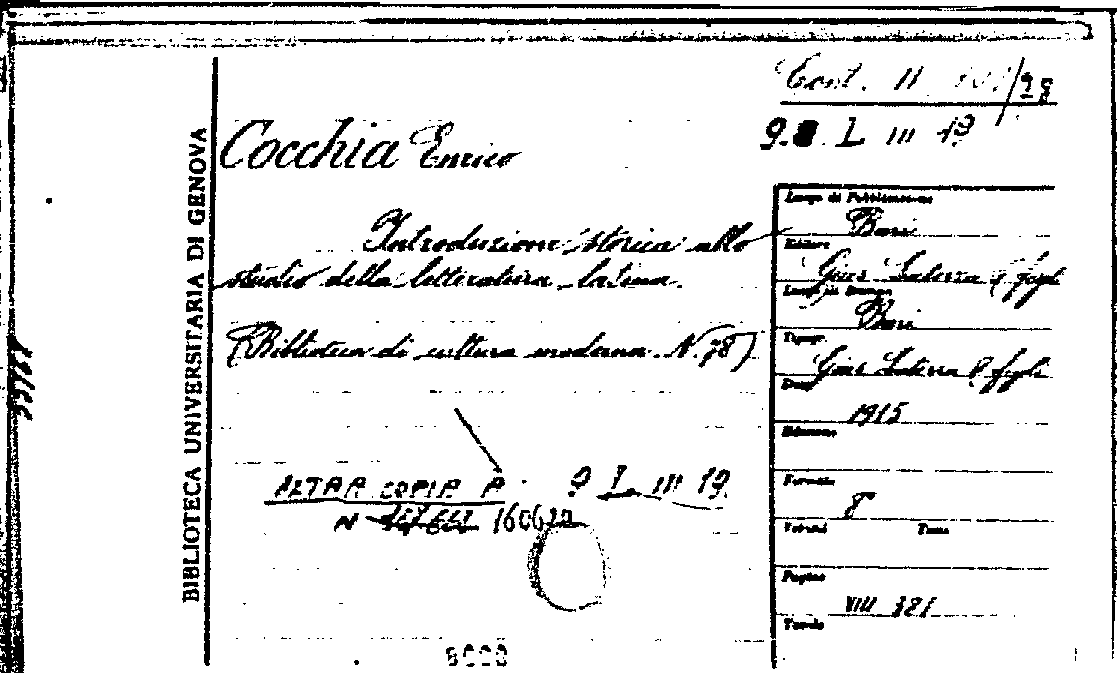 Cont. II /28
9. L III 19
BIBLIOTECA UNIVERSITARIA DI GENOVA
Cocchia Enrico
Introduzione storica allo
studio della letteratura latina.
(Biblioteca di cultura moderna. N. 78)
ALTRA COPIA A 9 L III 19.
N 160620
Luogo di Pubblicazione
Bari
Editore
Gius Laterza & figli
Luogo di Stampa
Bari
Tipogr.
Gius Laterza & figli
Data
1915
Edizione
Formato
8
Volumi Tomi
Pagine
VIII 381
Tavole